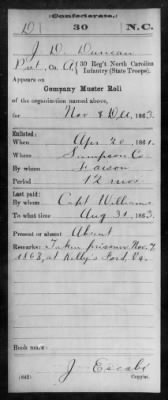 (Confederate.)
D 30 N.C.
J. D. Duncan
Pvt., Co. A, 30 Reg't North Carolina
Infantry (State Troops).
Appears on
Company Muster Roll
of the organization named above,
for Nov & Dec, 1863.
Enlisted:
When Apr 20, 1861.
Where Sampson Co
By whom Faison
Period 12 mos
Last paid:
By whom Capt Williams
To what time Aug 31, 1863.
Present or absent Absent
Remarks: Taken prisoner Nov. 7
1863, at Kelly's Ford Va.
Book mark:
(642)
Copyist.